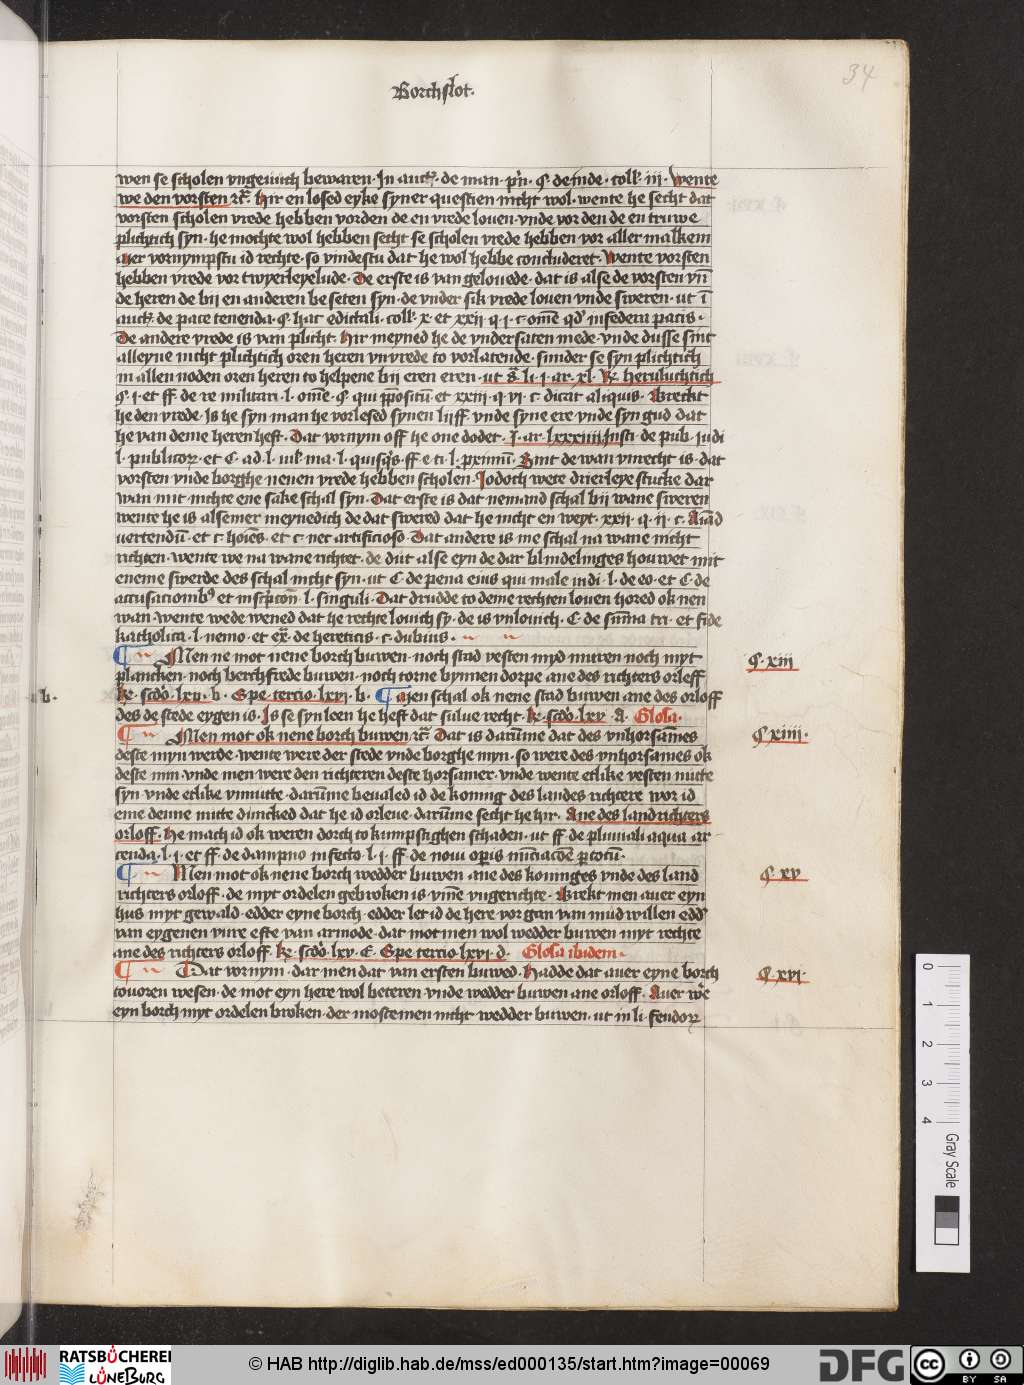 34
Borchslot.
wen se scholen vngeuuch bewaren. In auct. de man. prin. §. deinde. coll. iii. Wente
we den vorsten rc. Hir en losed eyke syner questien nicht wol. wente he secht dat
vorsten scholen vrede hebben vorden de en vrede louen. vnde vor den de en truwe
plichtich syn. he mochte wol hebben secht se scholen vrede hebben vor aller malkem
Auer vornympstu id rechte. so vindestu dat he wol hebbe concluderet. Wente vorsten
hebben vrede vor twyerleyelude. De erste is van gelouede. dat is alse de vorsten vn
de heren de bii en anderen be seten syn. de vnder sik vrede louen vnde sweren. ut i
auct. de pace tenenda. §. hac edictali. coll. x. et xxii. q. i. c. omne qd infedera pacis.
De andere vrede is van plicht. Hir meyned he de vndersaten mede. vnde dusse sint
alleyne nicht plichtich oren heren vnvrede to vorlatende. sunder se syn plichtich
in allen noden oren heren to helpene bii eren eren. ut s. li. i. ar. xl. K. herulichtich
§. i. et ff. de re militari. l. omne. §. qui ppositu. et xxiii. q. vi. c. dicat aliquis. Breckt
he den vrede. Is he syn man he vorlesed synen liff vnde syne ere vnde syn gud dat
he van deme heren heft. Dat vornym off he one dodet. J. ar. lxxxiiii Insti. de pub. iudi
l. publicor. et C. ad. l. iul. ma. l. quisqs. ff. e. ti. l. pximu. Sint de wan vnrecht is. dat
vorsten vnde borghe nenen vrede hebben scholen. Jodoch wete drierleye stucke dar
wan nut. nichte ene sake schal syn. Dat erste is dat nemand schal bii wane sweren
wente he is alsemer meynedich de dat swered dat he nicht en weyt. xxii. q. ii. c. Aiad
uertendu. et c. hoies. et c. nec artificioso. Dat andere is me schal na wane nicht
richten. wente we na wane richtet. de dut alse eyn de dar blindelinges houwet mit
eneme swerde des schal nicht syn. ut C. de pena eius qui male iudi. l. de eo. et C. de
accusationibus et inscripton. l. singuli. Dat drudde to deme rechten louen hored ok nen
wan. wente wede wened dat he rechte louich sy. de is vnlouich. C. de suma tri. et fide
katholica. l. nemo. et ex. de hereticis. c. dubius.
Men ne mot nene borch buwen. noch stad vesten myd muren noch myt
plancken. noch berchfrede buwen. noch torne bynnen dorpe ane des richters orleff
K. scdo. lxv. b. Spe. tercio. lxvi. b. Men schal ok nene stad buwen ane des orloff
des de stede eygen is. Is se syn leen he heft dat sulue recht. K. scdo. lxv. A. Glosa.
Men mot ok nene borch buwen rc. Dat is darume dat des vnhorsames
deste myn werde. wente were der stede vnde borghe myn. so were des vnhorsames ok
deste min. vnde men were den richteren deste horsamer. vnde wente etlike vesten nutte
syn. vnde etlike vnnutte. darume beualed id de koning des landes richtere wor id
eme denne nutte duncked dat he id orleue. darume secht he hir. Ane des landrichters
orloff. He mach id ok weren dorch to kumpstighen schaden. ut ff. de pluuiali aqua ar
cenda. l. i. et ff. de dampno infecto. l. i. ff. de noui operis
Men mot ok nene borch wedder buwen. ane des koninges vnde des land
richters orloff. de myt ordelen gebroken is vme vngerichte. Brekt men auer eyn
hus myt gewald. edder eyne borch. edder let id de here vor gan van mud willen edd
van eygenen vure efte van armode. dat mot men wol wedder buwen myt rechte
ane des richters orloff. K. scdo. lxv. C. Spe tercio. lxvi. d. Glosa ibidem.
Dat vornym. dar men dat van ersten buwed. Hadde dat auer eyne borch
touoren wesen. de mot eyn here wol beteren vnde wedder buwen ane orloff. Auer wre
eyn borch myt ordelen broken. der mostemen nicht wedder buwen. ut in li. feudor
b.
§. xiii
§. xiiii.
§. xv
§. xvi.
0 1 2 3 4 Gray Scale
RATSBÜCHEREI
LÜNEBURG
© HAB http://diglib.hab.de/mss/ed000135/start.htm?image=00069
DFG
cc BY SA